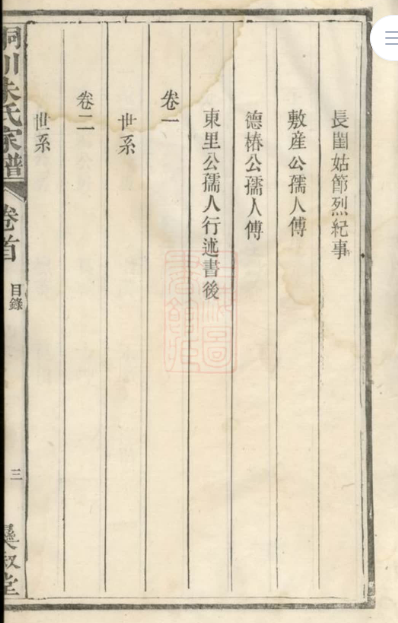 長閨姑節烈紀事
敷産公孺人傳
德椿公孺人傳
東里公孺人行述書後
卷一
世系
卷二
世系
川朱氏家譜
卷首
目錄
三
堂